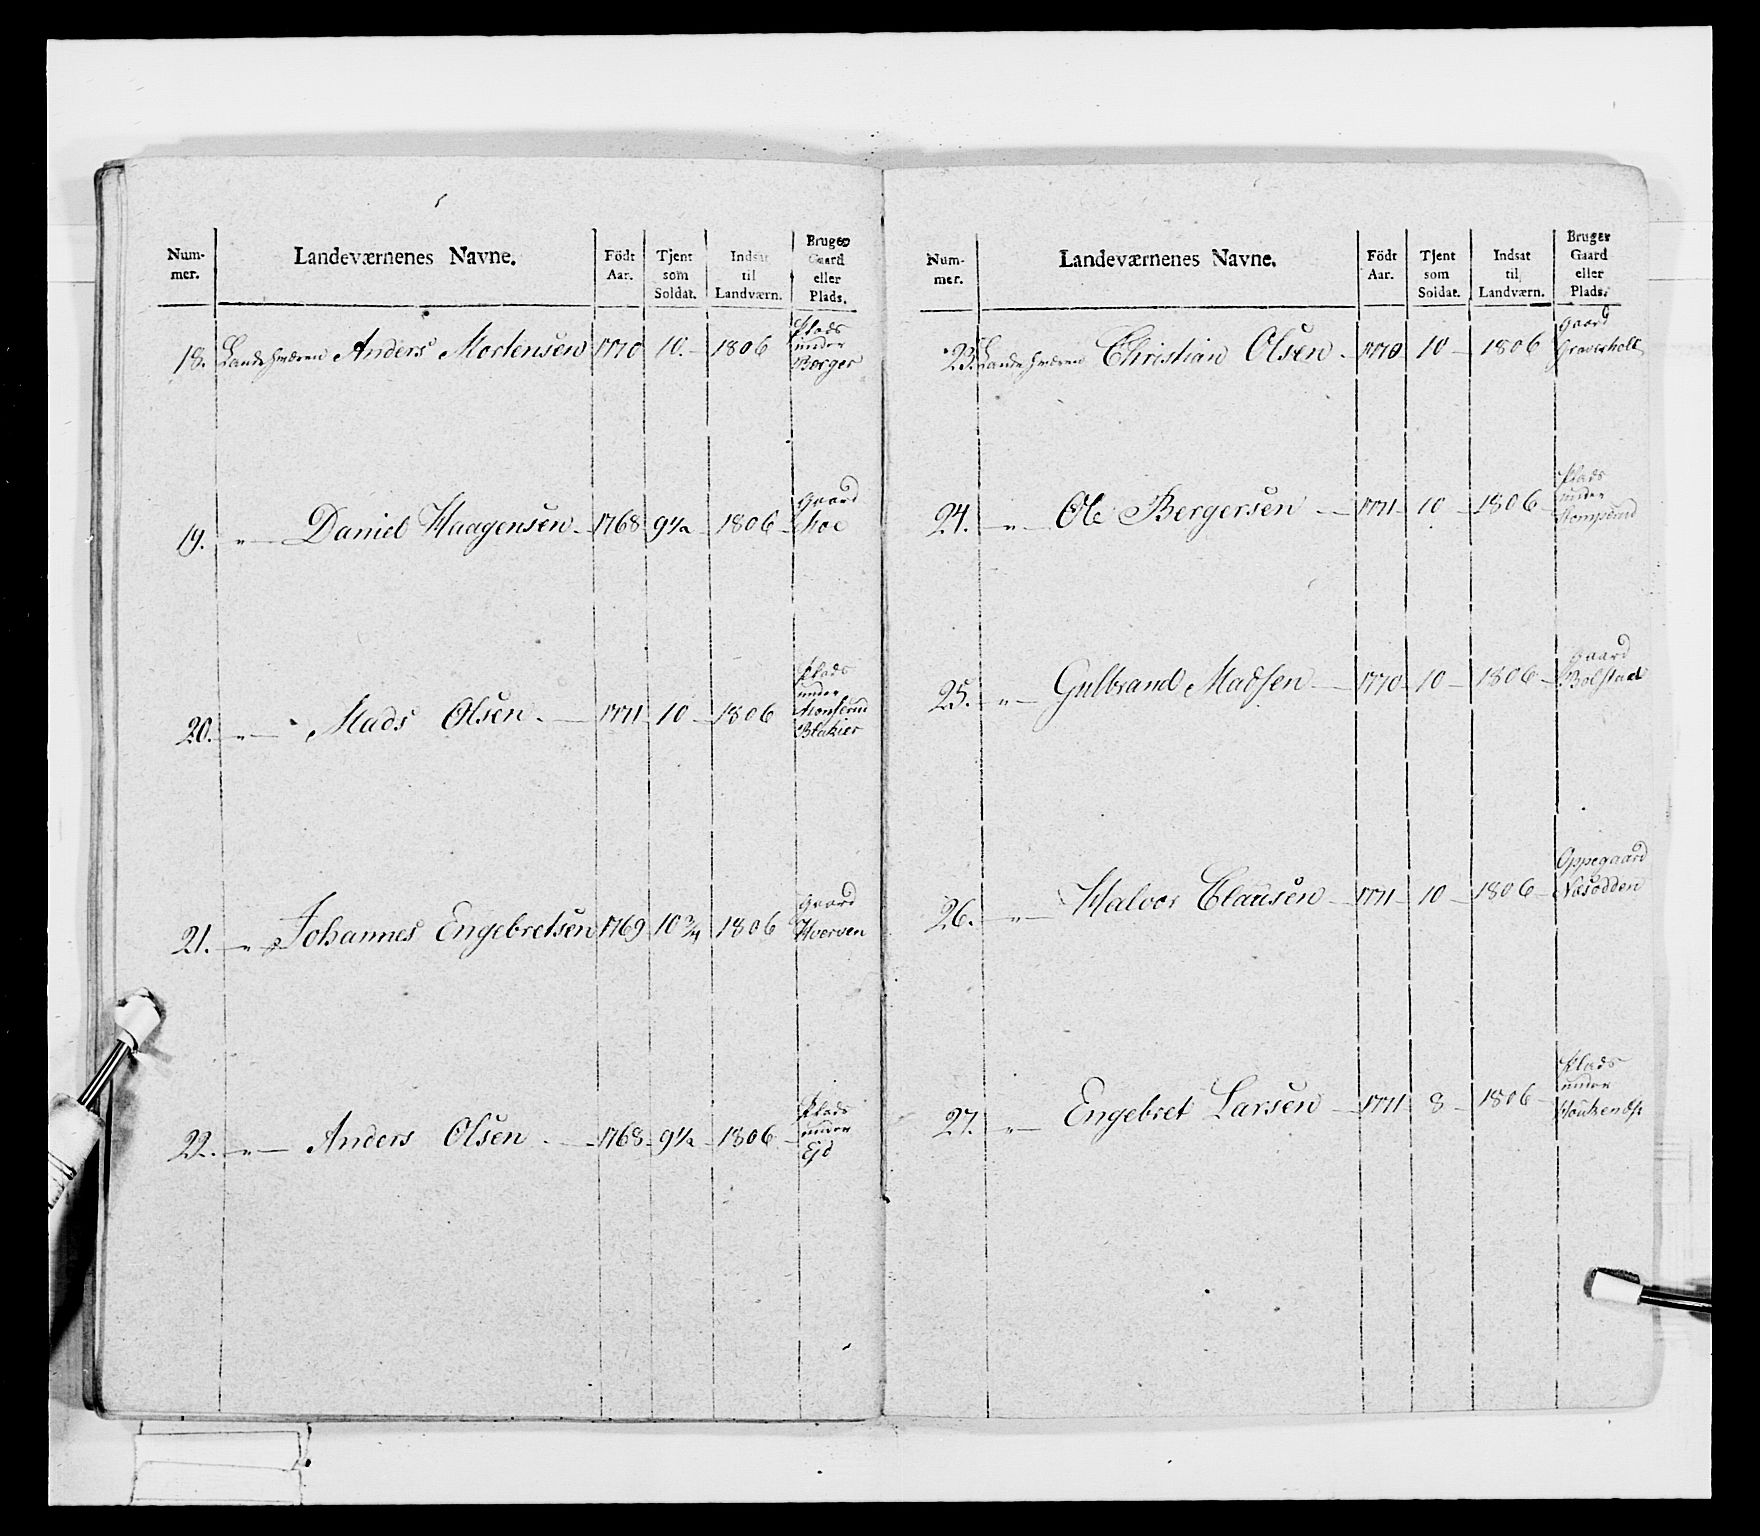 Num-
mer.
Landeværnenes Navne.
Födt
Aar.
Tjent
som
Soldat.
Indsat
til
Landværn.
Bruger
Gaard
eller
Plads.
18. Landsværen Anders Mortensen 1770 10. – 1806
Plads
under
Berger
19. – " – Daniel Haagensen – 1768 9½ – 1806 –
Gaard
20. – " – Mads Olsen. – 1771 – 10 – 1806
Plads
under
Blakier
21. – " – Johannes Engebretsen 1769 10¾ 1806
Gaard
Hverven
22. – " – Anders Olsen – 1768 – 9½ – 1806 –
Plads
under
Ejd
Num-
mer.
Landeværnenes Navne.
Födt
Aar.
Tjent
som
Soldat.
Indsat
til
Landværn.
Bruger
Gaard
eller
Plads.
23. Landsværen Christian Olsen – 1770 10 – 1806
Gaard
Graverholt
24. – " – Ole Bergersen – 1771 – 10 – 1806 –
Plads
under
25. – " – Gulbrand Madsen – 1770 – 10 – 1806 –
Gaard
Bolstad
26. – " – Halvor Clausen – 1771 – 10 – 1806 –
Oppegaard
Næsodden
27. – " – Engebret Larsen – 1771 8 – 1806 –
Plads
under